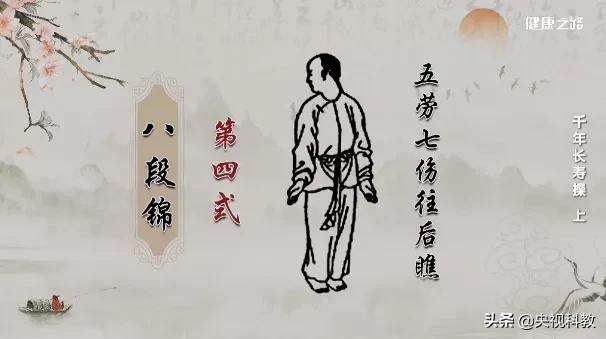 健康之路
千年长寿操 上
五劳七伤往后瞧
第四式
八段锦
头条 @央视科教